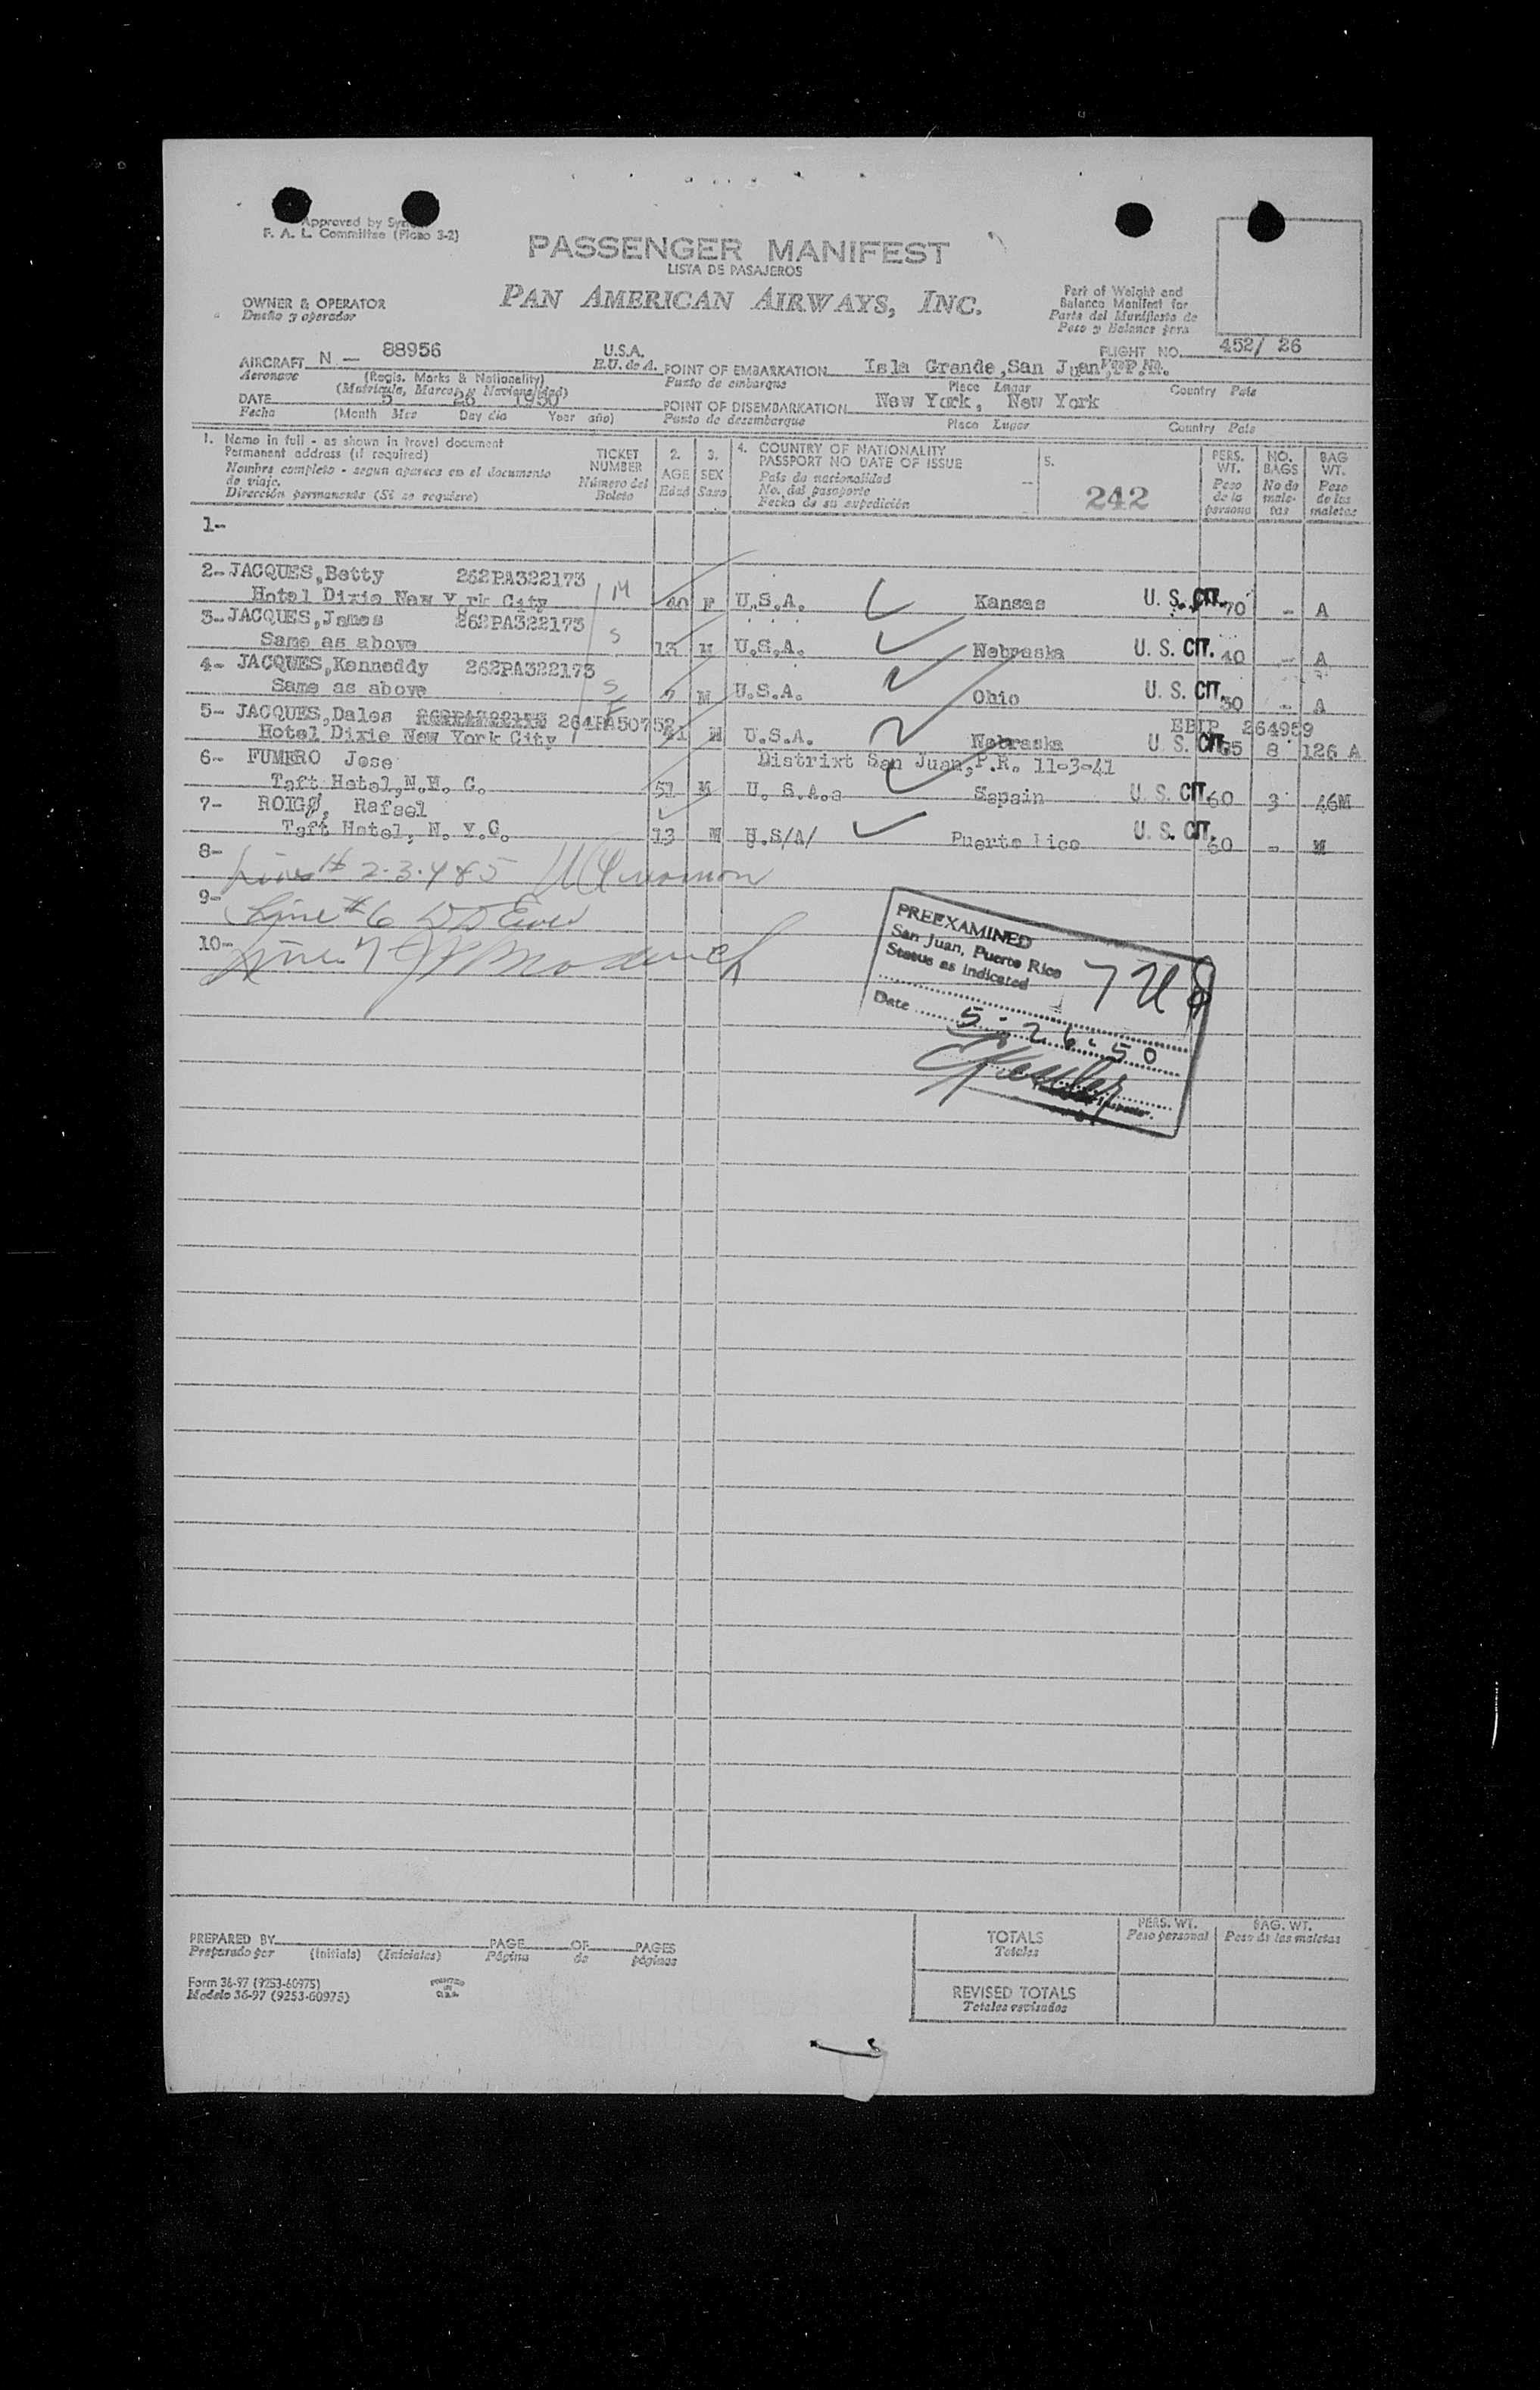 Approved by
F. A. L. Committee (Picao 3-2)
PASSENGER MANIFEST
LISTA DE PASAJEROS
PAN AMERICAN AIRWAYS, INC.
OWNER & OPERATOR
Dueño y operador
Part of Weight and
Balance Manifest for
Parte del Manifiesto de
Peso y Balance para
AIRCRAFT N - 88956 U.S.A.
Aeronave E.U. de A.
(Regis. Marks & Nationality)
(Matricula, Marcas y Nacionalidad)
FLIGHT NO. 452/ 26
POINT OF EMBARKATION Isla Grande,San Juan, P.R.
Punto de embarque Place Lugar Country Pais
DATE 5 26 1950
Fecha (Month Mes Day dia Year año)
POINT OF DISEMBARKATION New York, New York
Punto de desembarque Place Lugar Country Pais
1. Name in full - as shown in travel document
Permanent address (if required)
Nombre completo - segun aparece en el documento
de viaje.
Dirección permanente (Si se requiere)
TICKET
NUMBER
Número del
Boleto
2.
AGE
Edad
3.
SEX
Sexo
4. COUNTRY OF NATIONALITY
PASSPORT NO DATE OF ISSUE
Pais de nacionalidad
No. del pasaporte
Fecha de su expedición
5.
242
PERS.
WT.
Peso
de la
persona
NO.
BAGS
No de
male-
tas
BAG
WT.
Peso
de las
maletas
1-
2- JACQUES,Betty 262PA322173 M
Hotel Dixie New York City 40 F U.S.A. Kansas U. S. CIT. 70 - A
3- JACQUES,James 262PA322173 S
Same as above 13 M U.S.A. Nebraska U. S. CIT. 40 - A
4- JACQUES,Kenneddy 262PA322173 S
Same as above 7 M U.S.A. Ohio U. S. CIT. 30 - A
5- JACQUES,Dales 262PA322173 264PA50752 EBIP 264959
Hotel Dixie New York City 41 M U.S.A. Nebraska U. S. CIT. 65 8 126 A
6- FUMERO Jose Distrixt San Juan,P.R. 11-3-41
Taft Hotel,N.Y. C. 51 M U. S.A.a Sspain U. S. CIT. 60 3 46M
7- ROIG, Rafael
Taft Hotel, N. Y.C. 13 M U.S/A/ Puerto Lico U. S. CIT. 60 - M
8-
Lines # 2-3-4 & 5
9-
Line # 6
10-
Line 7
PREEXAMINED
San Juan, Puerto Rico
Status as indicated
7 US
Date 5-26-50
PREPARED BY PAGE OF PAGES
Preparado por (Initials) (Iniciales) Página de páginas
Form 36-97 (9253-60975)
Modelo 36-97 (9253-60975)
PRINTED
IN
U.S.A.
TOTALS
Totales
PERS. WT.
Peso personal
BAG. WT.
Peso de las maletas
REVISED TOTALS
Totales revisados